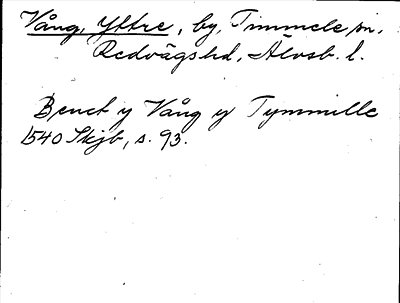 Vång, Yttre, by, Timmele sn.
Redvägshd, Älvsb. l.
Benct y Vång y Tymmille
1540 Skjb, s. 93.